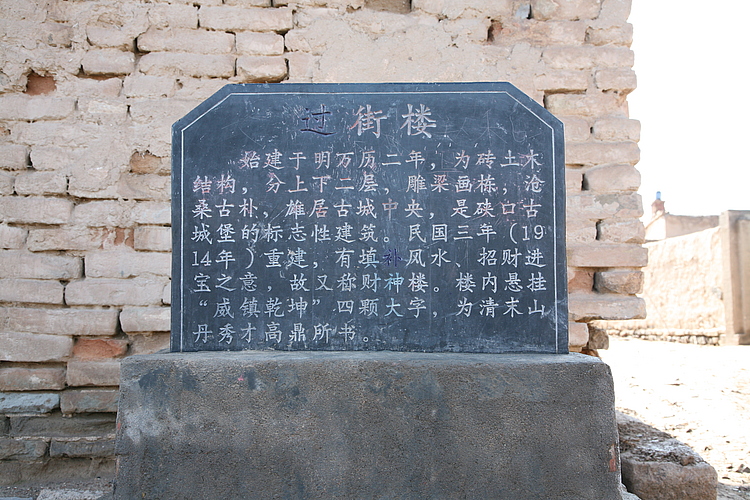 过街楼
始建于明万历二年，为砖土木
结构，分上下二层，雕梁画栋，沧
桑古朴，雄居古城中央，是碛口古
城堡的标志性建筑。民国三年（19
14年）重建，有填补风水、招财进
宝之意，故又称财神楼。楼内悬挂
“威镇乾坤”四颗大字，为清末山
丹秀才高鼎所书。